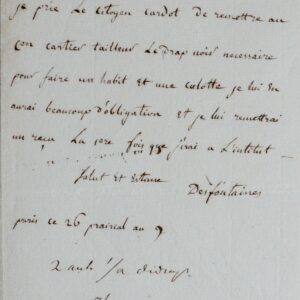 je prie Le citoyen cardot de remettre au
con cartier tailleur Le Drap noir necessaire
pour faire un habit et une culotte je lui En
aurai beaucoup d'obligation et je lui remettrai
un reçu La 1ere fois que j'irai a L'institut
Salut Et Estime
Desfontaines
paris ce 26 prairial au 9